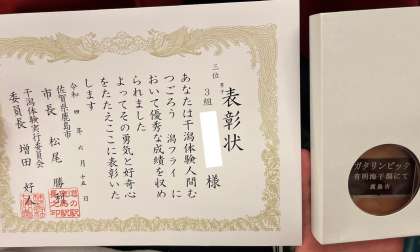 表彰状
三位
3組 様
あなたは干潟体験人間む
つごろう 潟フライ に
おいて優秀な成績を収め
られました
よってその勇気と好奇心
をたたえここに表彰いた
します
令和 四年 六月十五日
佐賀県鹿島市
市長 松尾 勝
干潟体験実行委員会
委員長 増田 好
ガタリンピック
有明海干潟にて
鹿島市